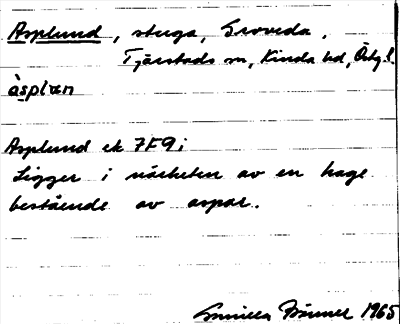 Asplund, stuga, Groveda,
Tjärstads sn, Kinda hd, Östg.l.
àsplœn
Asplund ek 7F9i
Ligger i närheten av en hage
bestående av aspar.
Gunilla 1965